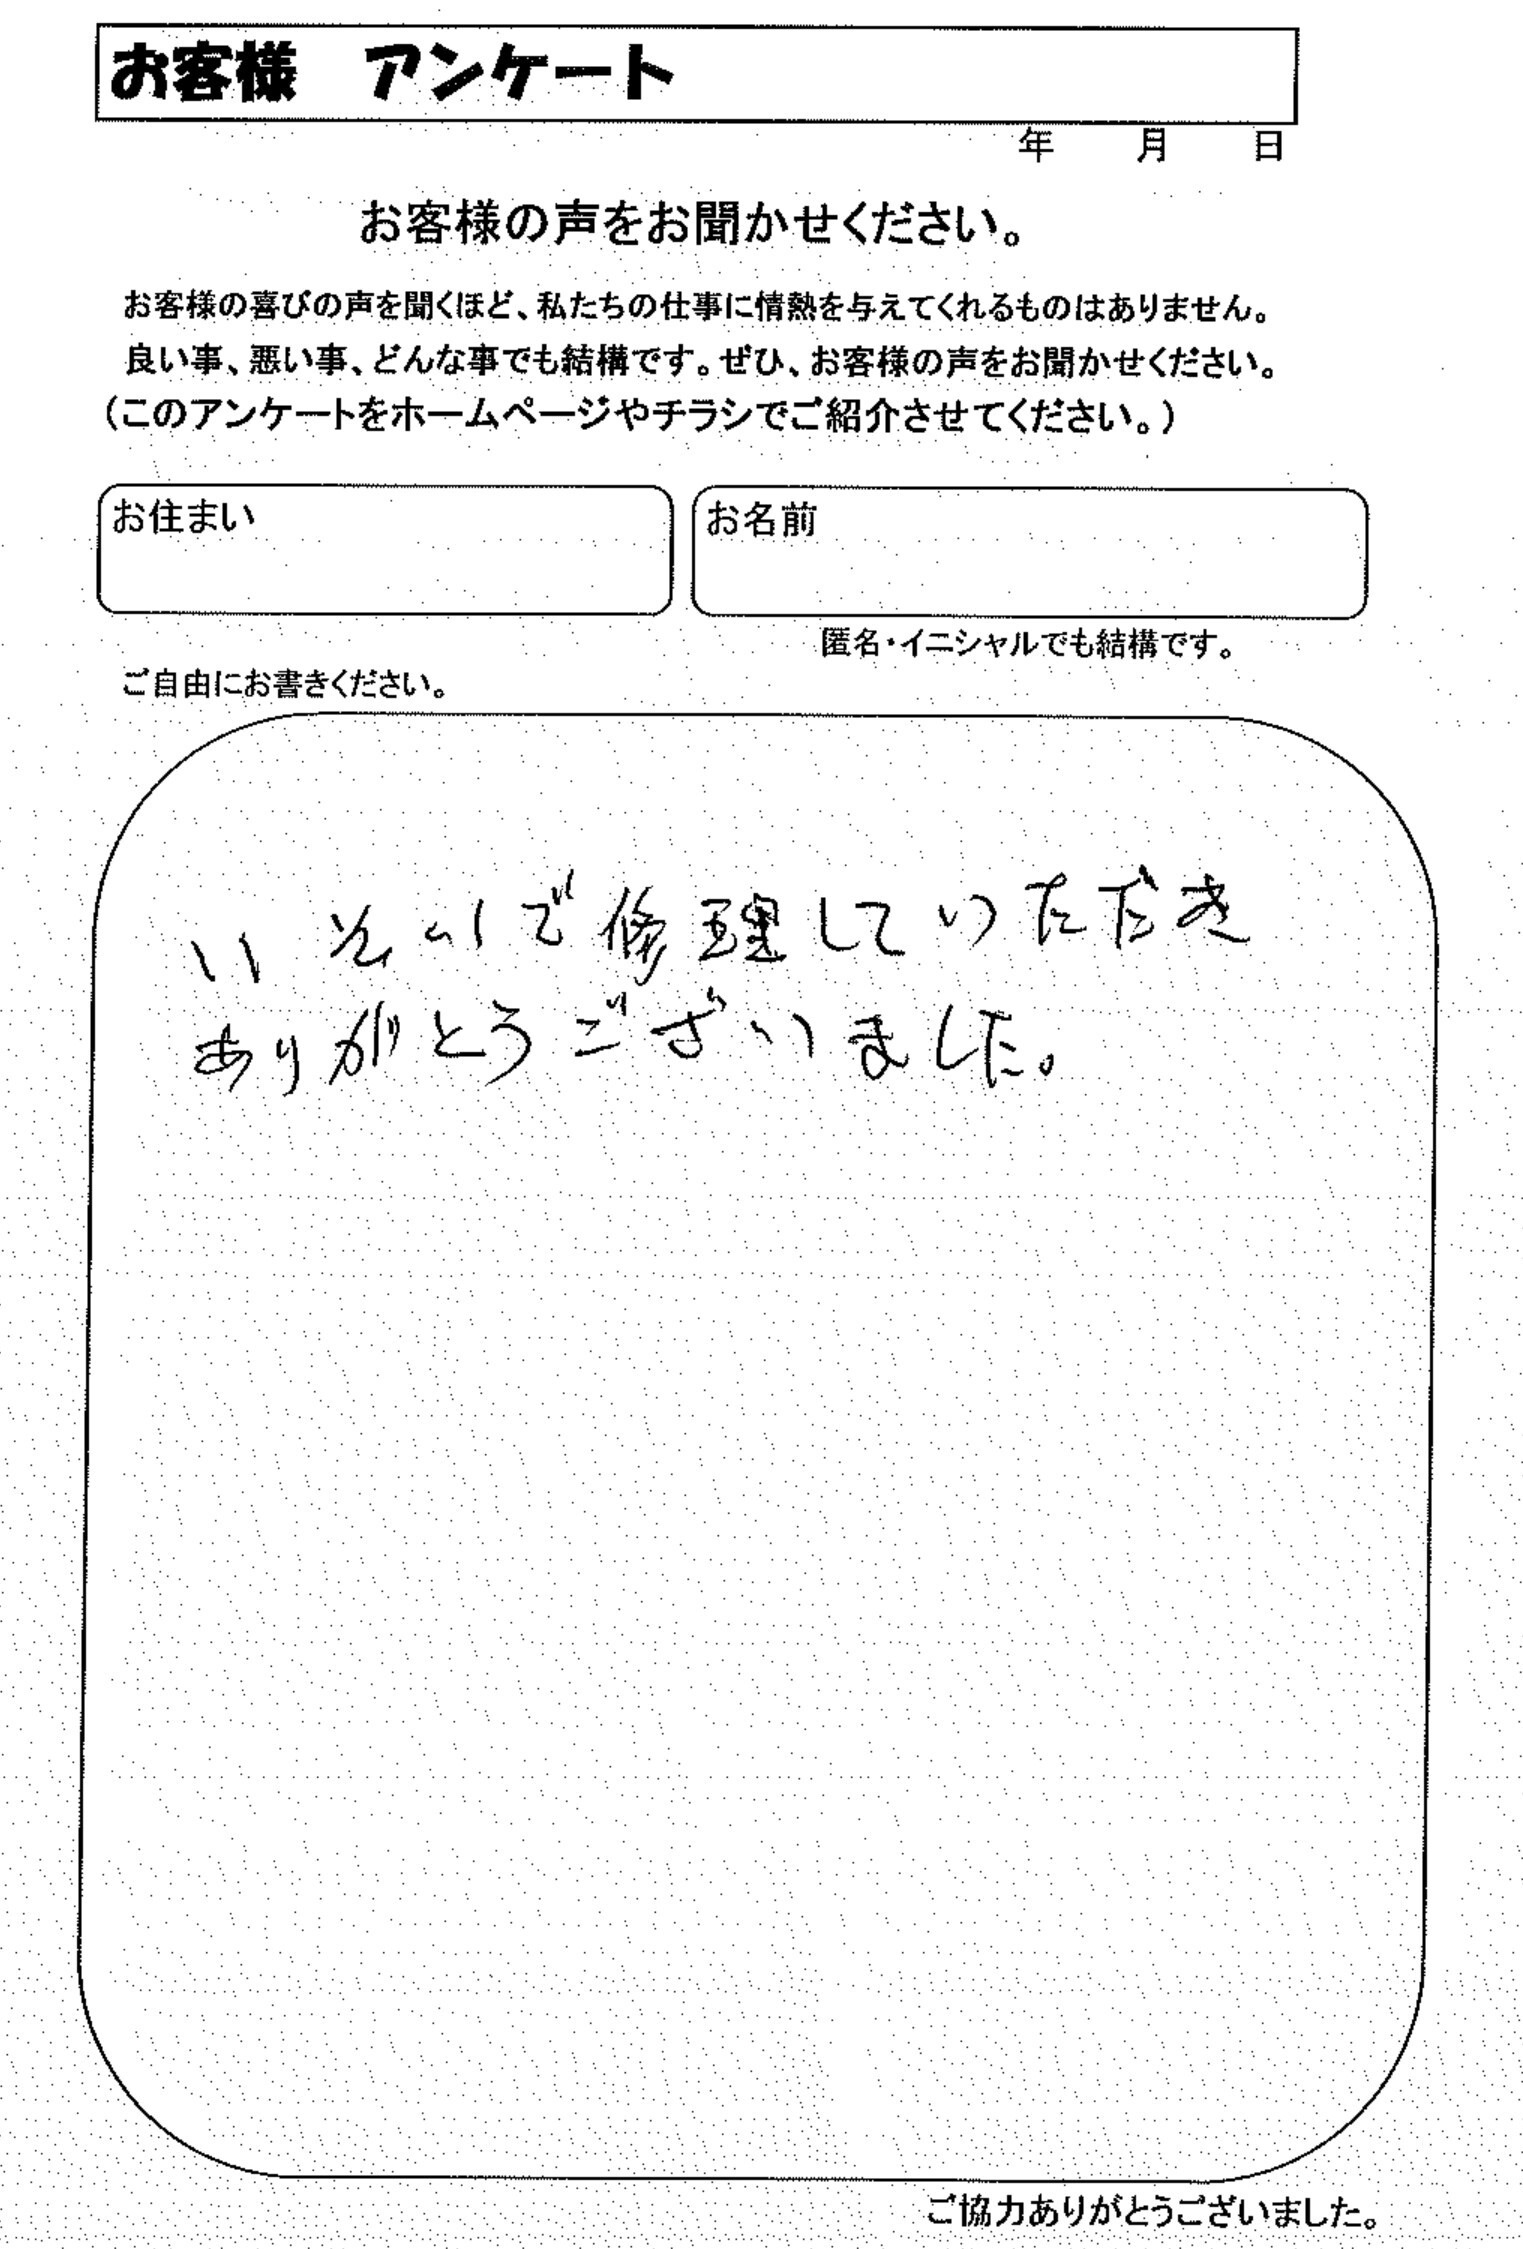 お客様　アンケート
年　月　日
お客様の声をお聞かせください。
お客様の喜びの声を聞くほど、私たちの仕事に情熱を与えてくれるものはありません。
良い事、悪い事、どんな事でも結構です。ぜひ、お客様の声をお聞かせください。
（このアンケートをホームページやチラシでご紹介させてください。）
お住まい
お名前
匿名・イニシャルでも結構です。
ご自由にお書きください。
いそいで修理していただき
ありがとうございました。
ご協力ありがとうございました。